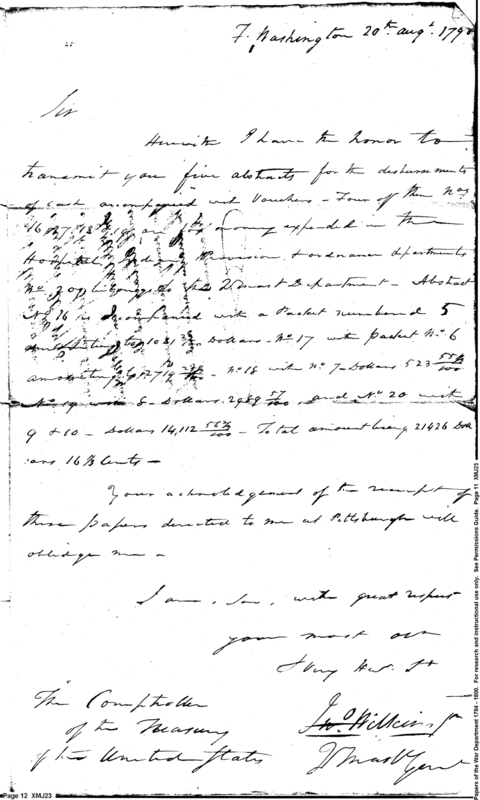 F. Washington 20th augt. 179
Sir
Herewith I have the honor to
transmit you five abstracts for the disbursements
of cash accompanied with Vouchers - Four of them Nos
16. 17. 18. & 19. are for money expended in the
Hospital, Indian, Provision & ordnance departments
No. 20 belongs to the Qr. Mast Department - Abstract
No. 16 is accompanied with a Packet numbered 5
amounting to 1031 Dollars - No. 17 with packet No. 6
amounting to No. 18 with No. 7 - Dollars 523
No. 19 with 8 - Dollars. 2989 57/100, and No. 20 with
9 & 10 - Dollars 14,112 - Total amount being 21426 Doll
ars 16 Cents -
Your acknoledgement of the receipt of
these papers directed to me at Pittsburgh will
obledge me -
I am, Sir, with great respect
your most obt
& Very Hue. St
The Comptroller
of the Treasury
of the United States
Jno. Wilkins Jr
Q Mast Genl
Page 12 XMJ23
Papers of the War Department 1784 - 1800. For research and instructional use only. See Permissions Guide. Page 11 XMJ23